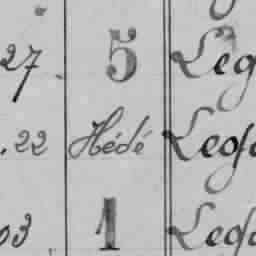 27. 5 Leg
.22 Hédé Lego
03. 1 Lego